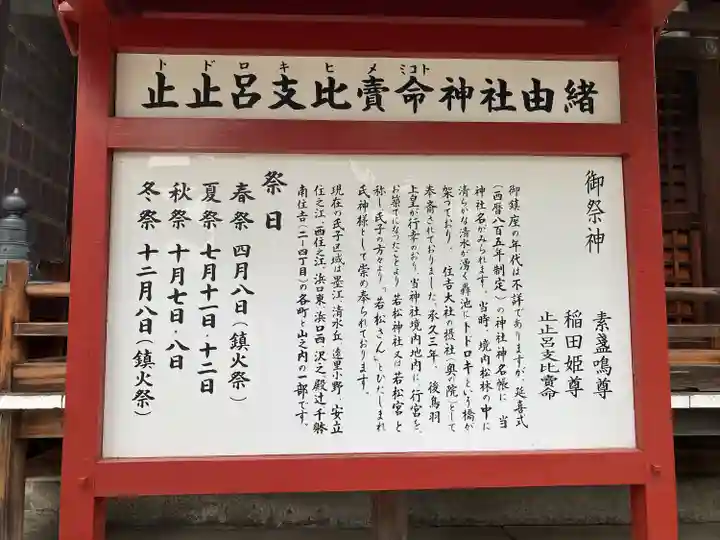 トドロキヒメミコト
止止呂支比賣命神社由緒
御祭神
素盞鳴尊
稲田姫尊
止止呂支比賣命
御鎮座の年代は不詳でありますが、延喜式
(西暦八百五年制定)の神社神名帳に、当
神社名がみられます。当時、境内松林の中に
清らかな清水が湧く轟池にトドロキという橋が
架っており、住吉大社の摂社(奥の院)として
奉斎されておりました。承久三年、後鳥羽
上皇が行幸のおり、当神社境内地内に、行宮を、
お築てになったことより若松神社又は若松宮と
称し氏子の方々より「若松さん」としたしまれ
氏神様として崇め奉られております。
現在の氏子区域は墨江、清水丘、遠里小野、安立
住之江、西住之江、浜口東、浜口西、沢之、殿辻、千躰
南住吉(二ー四丁目)の各町と山之内の一部です。
祭日
春祭 四月八日(鎮火祭)
夏祭 七月十一日・十二日
秋祭 十月七日・八日
冬祭 十二月八日(鎮火祭)